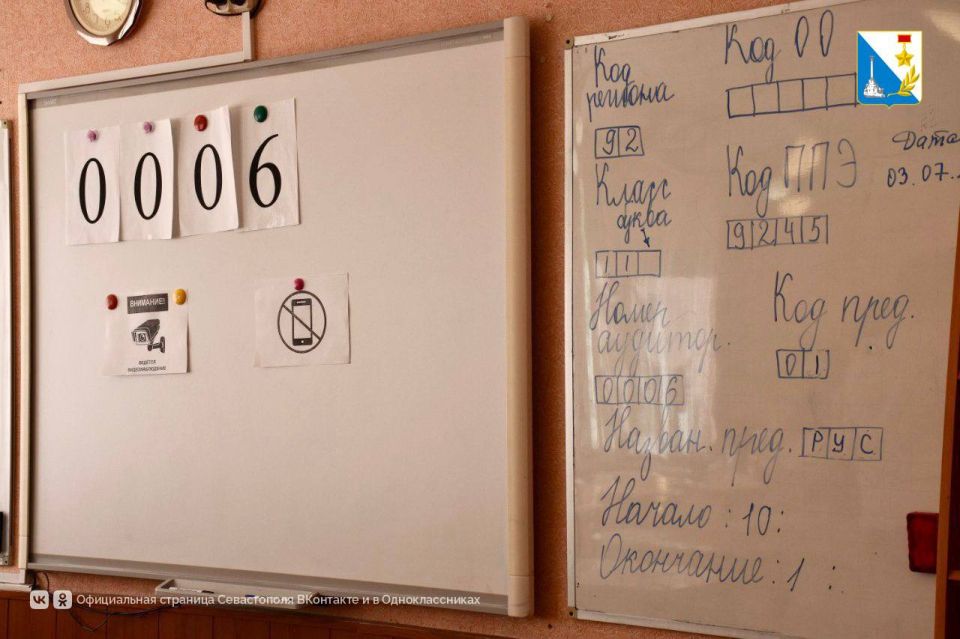 0006
ВНИМАНИЕ!
ВЕДЁТСЯ
ВИДЕОНАБЛЮДЕНИЕ
Код
региона
92
Класс
буква
11
Номер
аудитор.
0006
Назван. пред. РУС
Начало : 10:
Окончание : 1 :
Код ОО
Код ППЭ
9245
Дата
03.07.
Код пред.
01
Официальная страница Севастополя ВКонтакте и в Одноклассниках